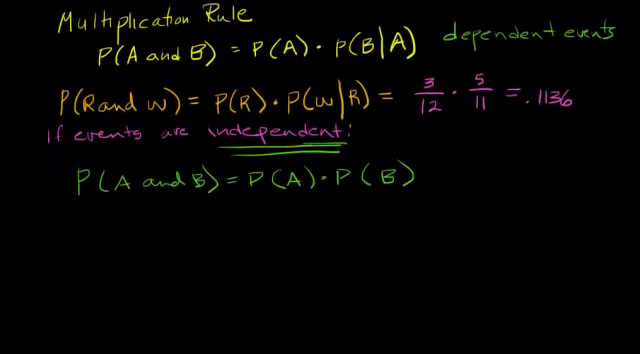 Multiplication Rule
P(A and B) = P(A) · P(B|A) dependent events
P(R and W) = P(R) · P(W|R) = 3/12 · 5/11 = .1136
If events are independent:
P(A and B) = P(A) · P(B)